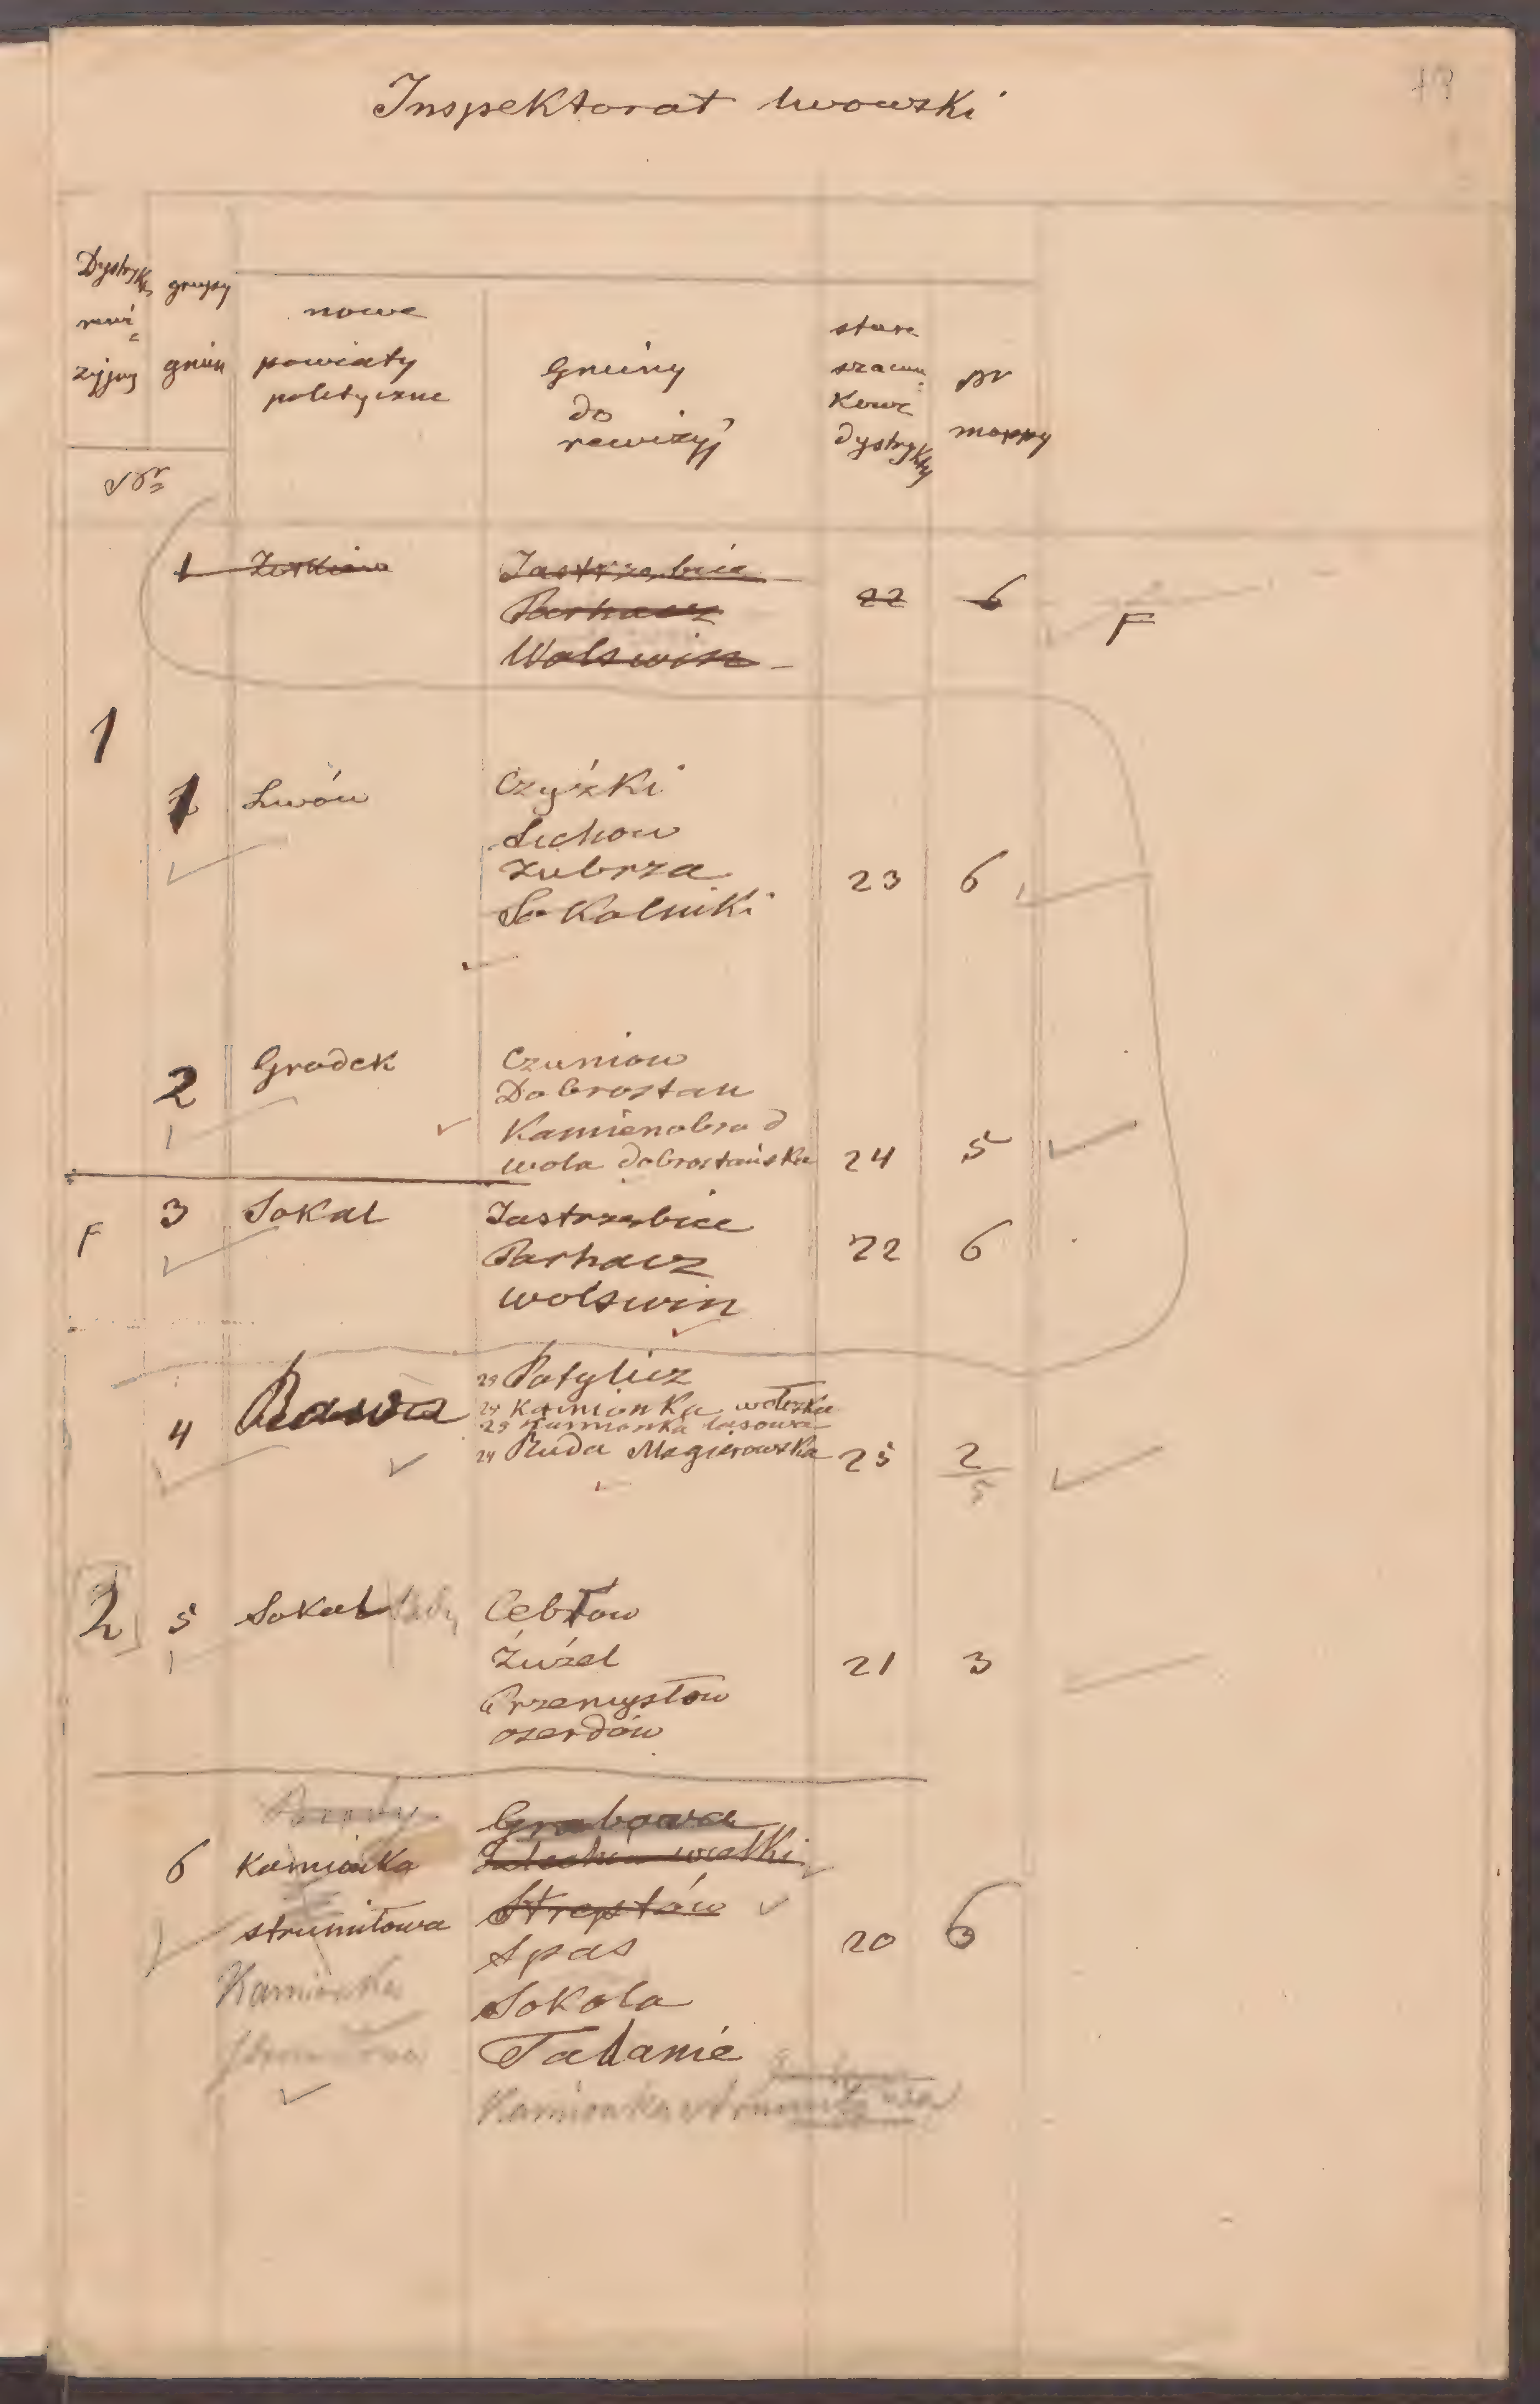 Inspektorat lwowski
Dystrykt rewizyjny
grupy gmin
nowe
powiaty
polityczne
Gminy
do
rewizyj
stare
szacun
kowe
dystrykty
nr
mappy
Nr
1 Żółkiew Jastrzębice
Parhacz 22 6 F
Wolswin
1
1 Lwów Czyżki
Sichow
Zubrza 23 6
Sokolniki
2 Gródek Czuniow
Dobrostan
Kamienobrod
wola dobrostańska 24 5
3 Sokal Jastrzębice
F Parhacz 22 6
wolswin
4 Rawa 25 Potylicz
24 Kamionka wołoska
25 Kamionka lasowa
24 Ruda Magierowska 25 2/5
2 5 Sokal Cebłow
Żużel 21 3
Przemysłow
oserdów
Brody Grabowa
6 Kamionka wielki
strumiłowa Streptów
Spas 20 6
Kamionka Sokola
Strumiłowa Tadanie
Kamionka strumiłowa